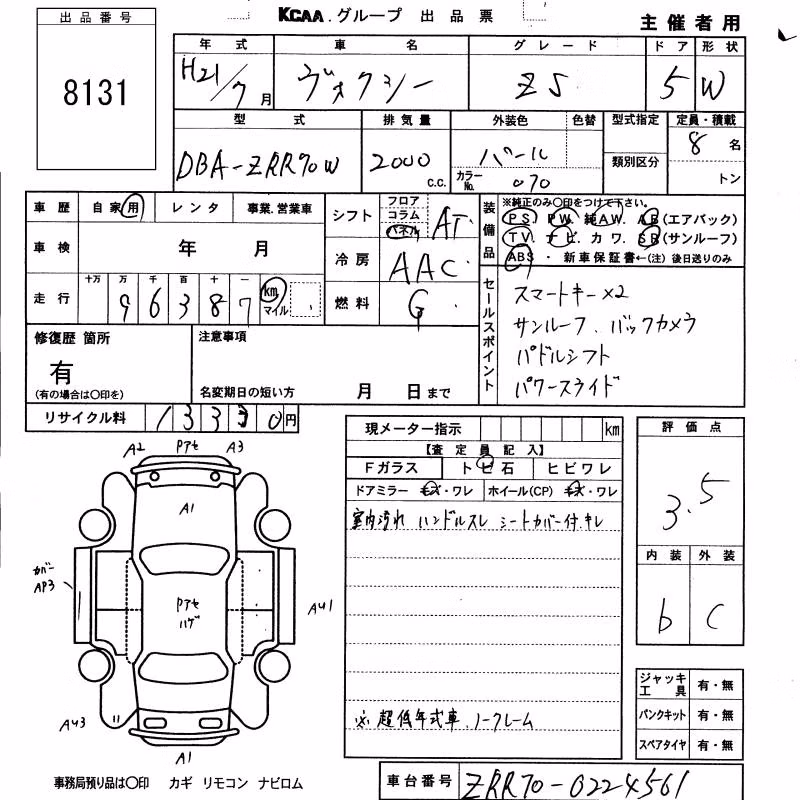 出品番号
8131
KCAA.グループ 出品票
主催者用
年式 車名 グレード ドア 形状
H21/7月 ヴォクシー ZS 5 W
型式 排気量 外装色 色替 型式指定 定員・積載
DBA-ZRR70W 2000 C.C. パール 8名
カラーNo. 070 類別区分 トン
車歴 自家用 レンタ 事業.営業車
車検 年 月
走行 十万 万 千 百 十 一
9 6 3 8 7 km マイル
シフト フロア コラム パネル AT
冷房 AAC
燃料 G
装備品
※純正のみ○印をつけて下さい。
PS. PW. 純AW. AB(エアバック)
TV. ナビ. カワ. SR(サンルーフ)
ABS ・ 新車保証書←(注) 後日送りのみ
セールスポイント
スマートキー×2
サンルーフ、バックカメラ
パドルシフト
パワースライド
修復歴 箇所
有
(有の場合は○印を)
注意事項
名変期日の短い方 月 日まで
リサイクル料 13330円
現メーター指示 km
【査定員記入】
Fガラス トビ石 ヒビワレ
ドアミラー キズ・ワレ ホイール(CP) キズ・ワレ
室内汚れ ハンドルスレ シートカバー付.キレ
※超低年式車.ノークレーム
評価点
3.5
内装 外装
b C
ジャッキ工具 有・無
パンクキット 有・無
スペアタイヤ 有・無
A2 Pアセ A3
A1
カバー
AP3
Pアセ
ハゲ
AU1
AU3
A1
事務局預り品は○印 カギ リモコン ナビロム
車台番号 ZRR70-0224561